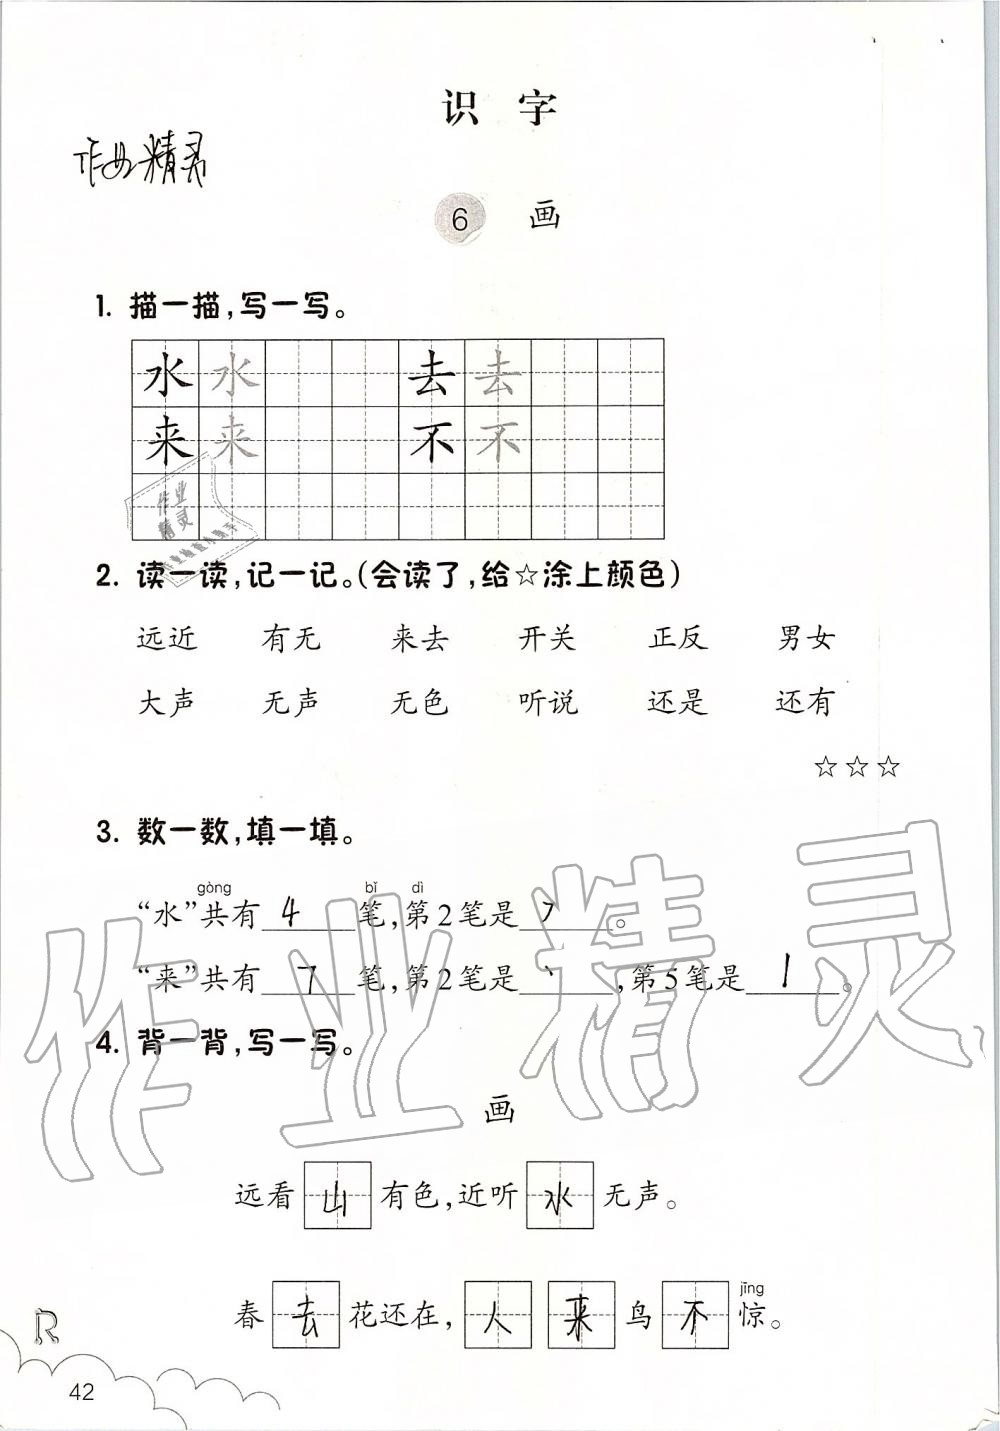 识 字
作业精灵
6 画
1. 描一描,写一写。
水 水 去 去
来 来 不 不
作业
精灵
2. 读一读,记一记。(会读了,给☆涂上颜色)
远近 有无 来去 开关 正反 男女
大声 无声 无色 听说 还是 还有
☆☆☆
3. 数一数,填一填。
gòng bǐ dì
“水”共有 4 笔,第2笔是 フ 。
“来”共有 7 笔,第2笔是 丶 ,第5笔是 丨 。
作业精灵
4. 背一背,写一写。
画
远看 山 有色,近听 水 无声。
jīng
春 去 花还在, 人 来 鸟 不 惊。
R
42